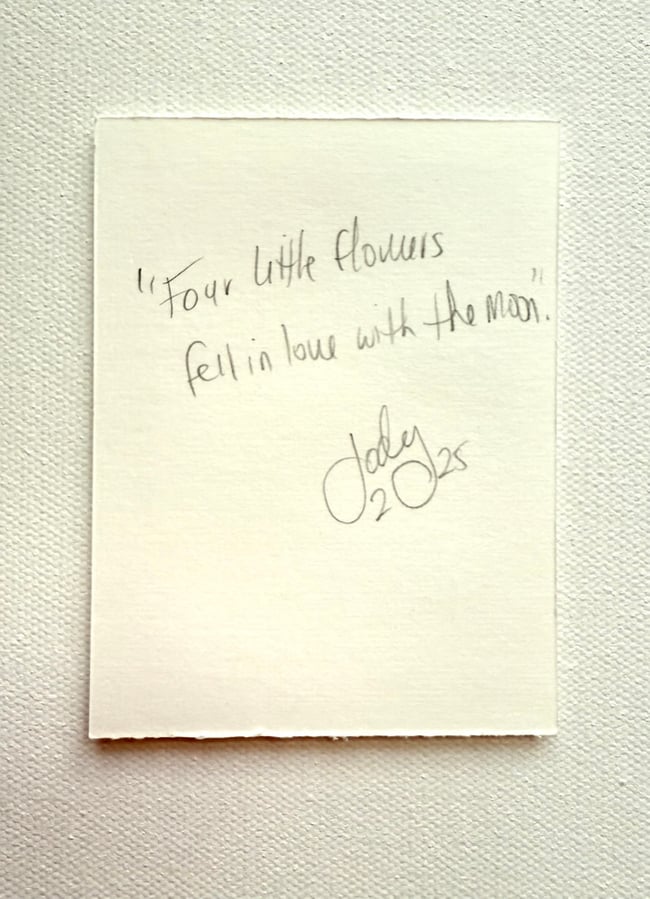 "Four little flowers
fell in love with the moon."
Jody
2025